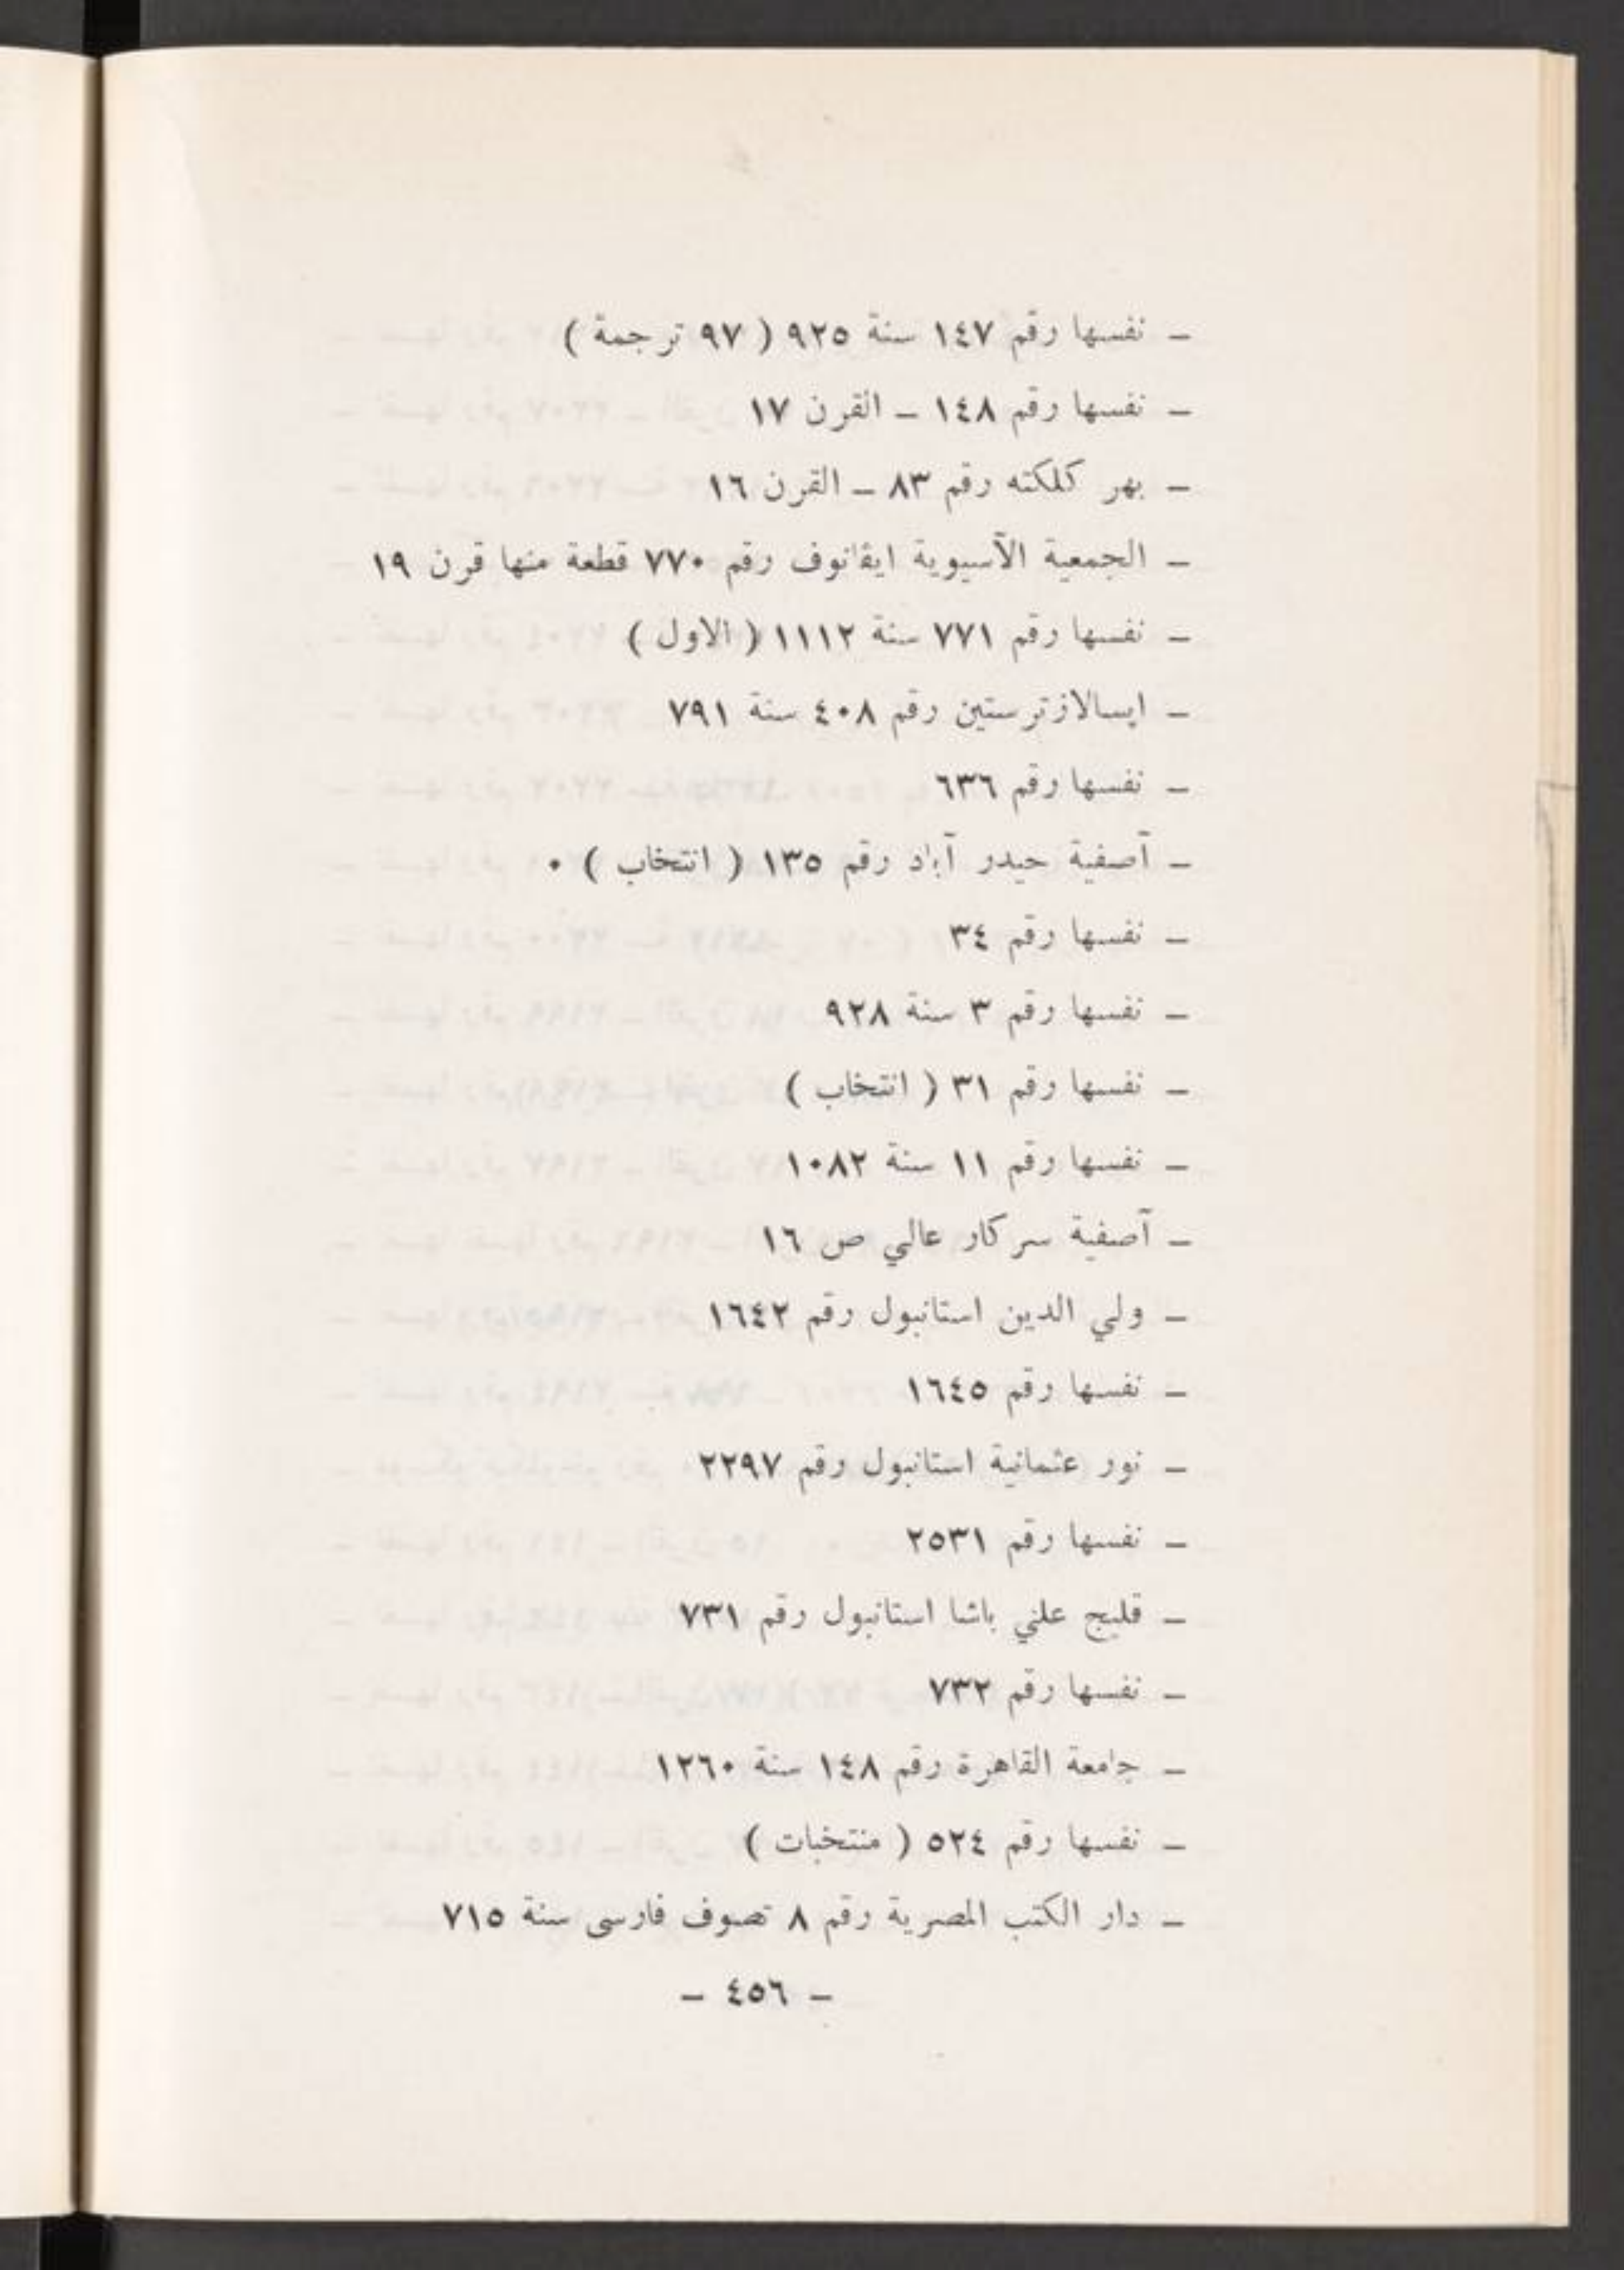 ـ نفسها رقم ١٤٧ سنة ٩٢٥ ( ٩٧ ترجمة )
ـ نفسها رقم ١٤٨ ـ القرن ١٧
ـ بهر كلكته رقم ٨٣ ـ القرن ١٦
ـ الجمعية الآسيوية ايڤانوف رقم ٧٧٠ قطعة منها قرن ١٩
ـ نفسها رقم ٧٧١ سنة ١١١٢ ( الاول )
ـ ايسالازترستين رقم ٤٠٨ سنة ٧٩١
ـ نفسها رقم ٦٣٦
ـ آصفية حيدر آباد رقم ١٣٥ ( انتخاب ) ٠
ـ نفسها رقم ٣٤
ـ نفسها رقم ٣ سنة ٩٢٨
ـ نفسها رقم ٣١ ( انتخاب )
ـ نفسها رقم ١١ سنة ١٠٨٢
ـ آصفية سركار عالي ص ١٦
ـ ولي الدين استانبول رقم ١٦٤٢
ـ نفسها رقم ١٦٤٥
ـ نور عثمانية استانبول رقم ٢٢٩٧
ـ نفسها رقم ٢٥٣١
ـ قليج علي باشا استانبول رقم ٧٣١
ـ نفسها رقم ٧٣٢
ـ جامعة القاهرة رقم ١٤٨ سنة ١٢٦٠
ـ نفسها رقم ٥٢٤ ( منتخبات )
ـ دار الكتب المصرية رقم ٨ تصوف فارسى سنة ٧١٥
ـ ٤٥٦ ـ